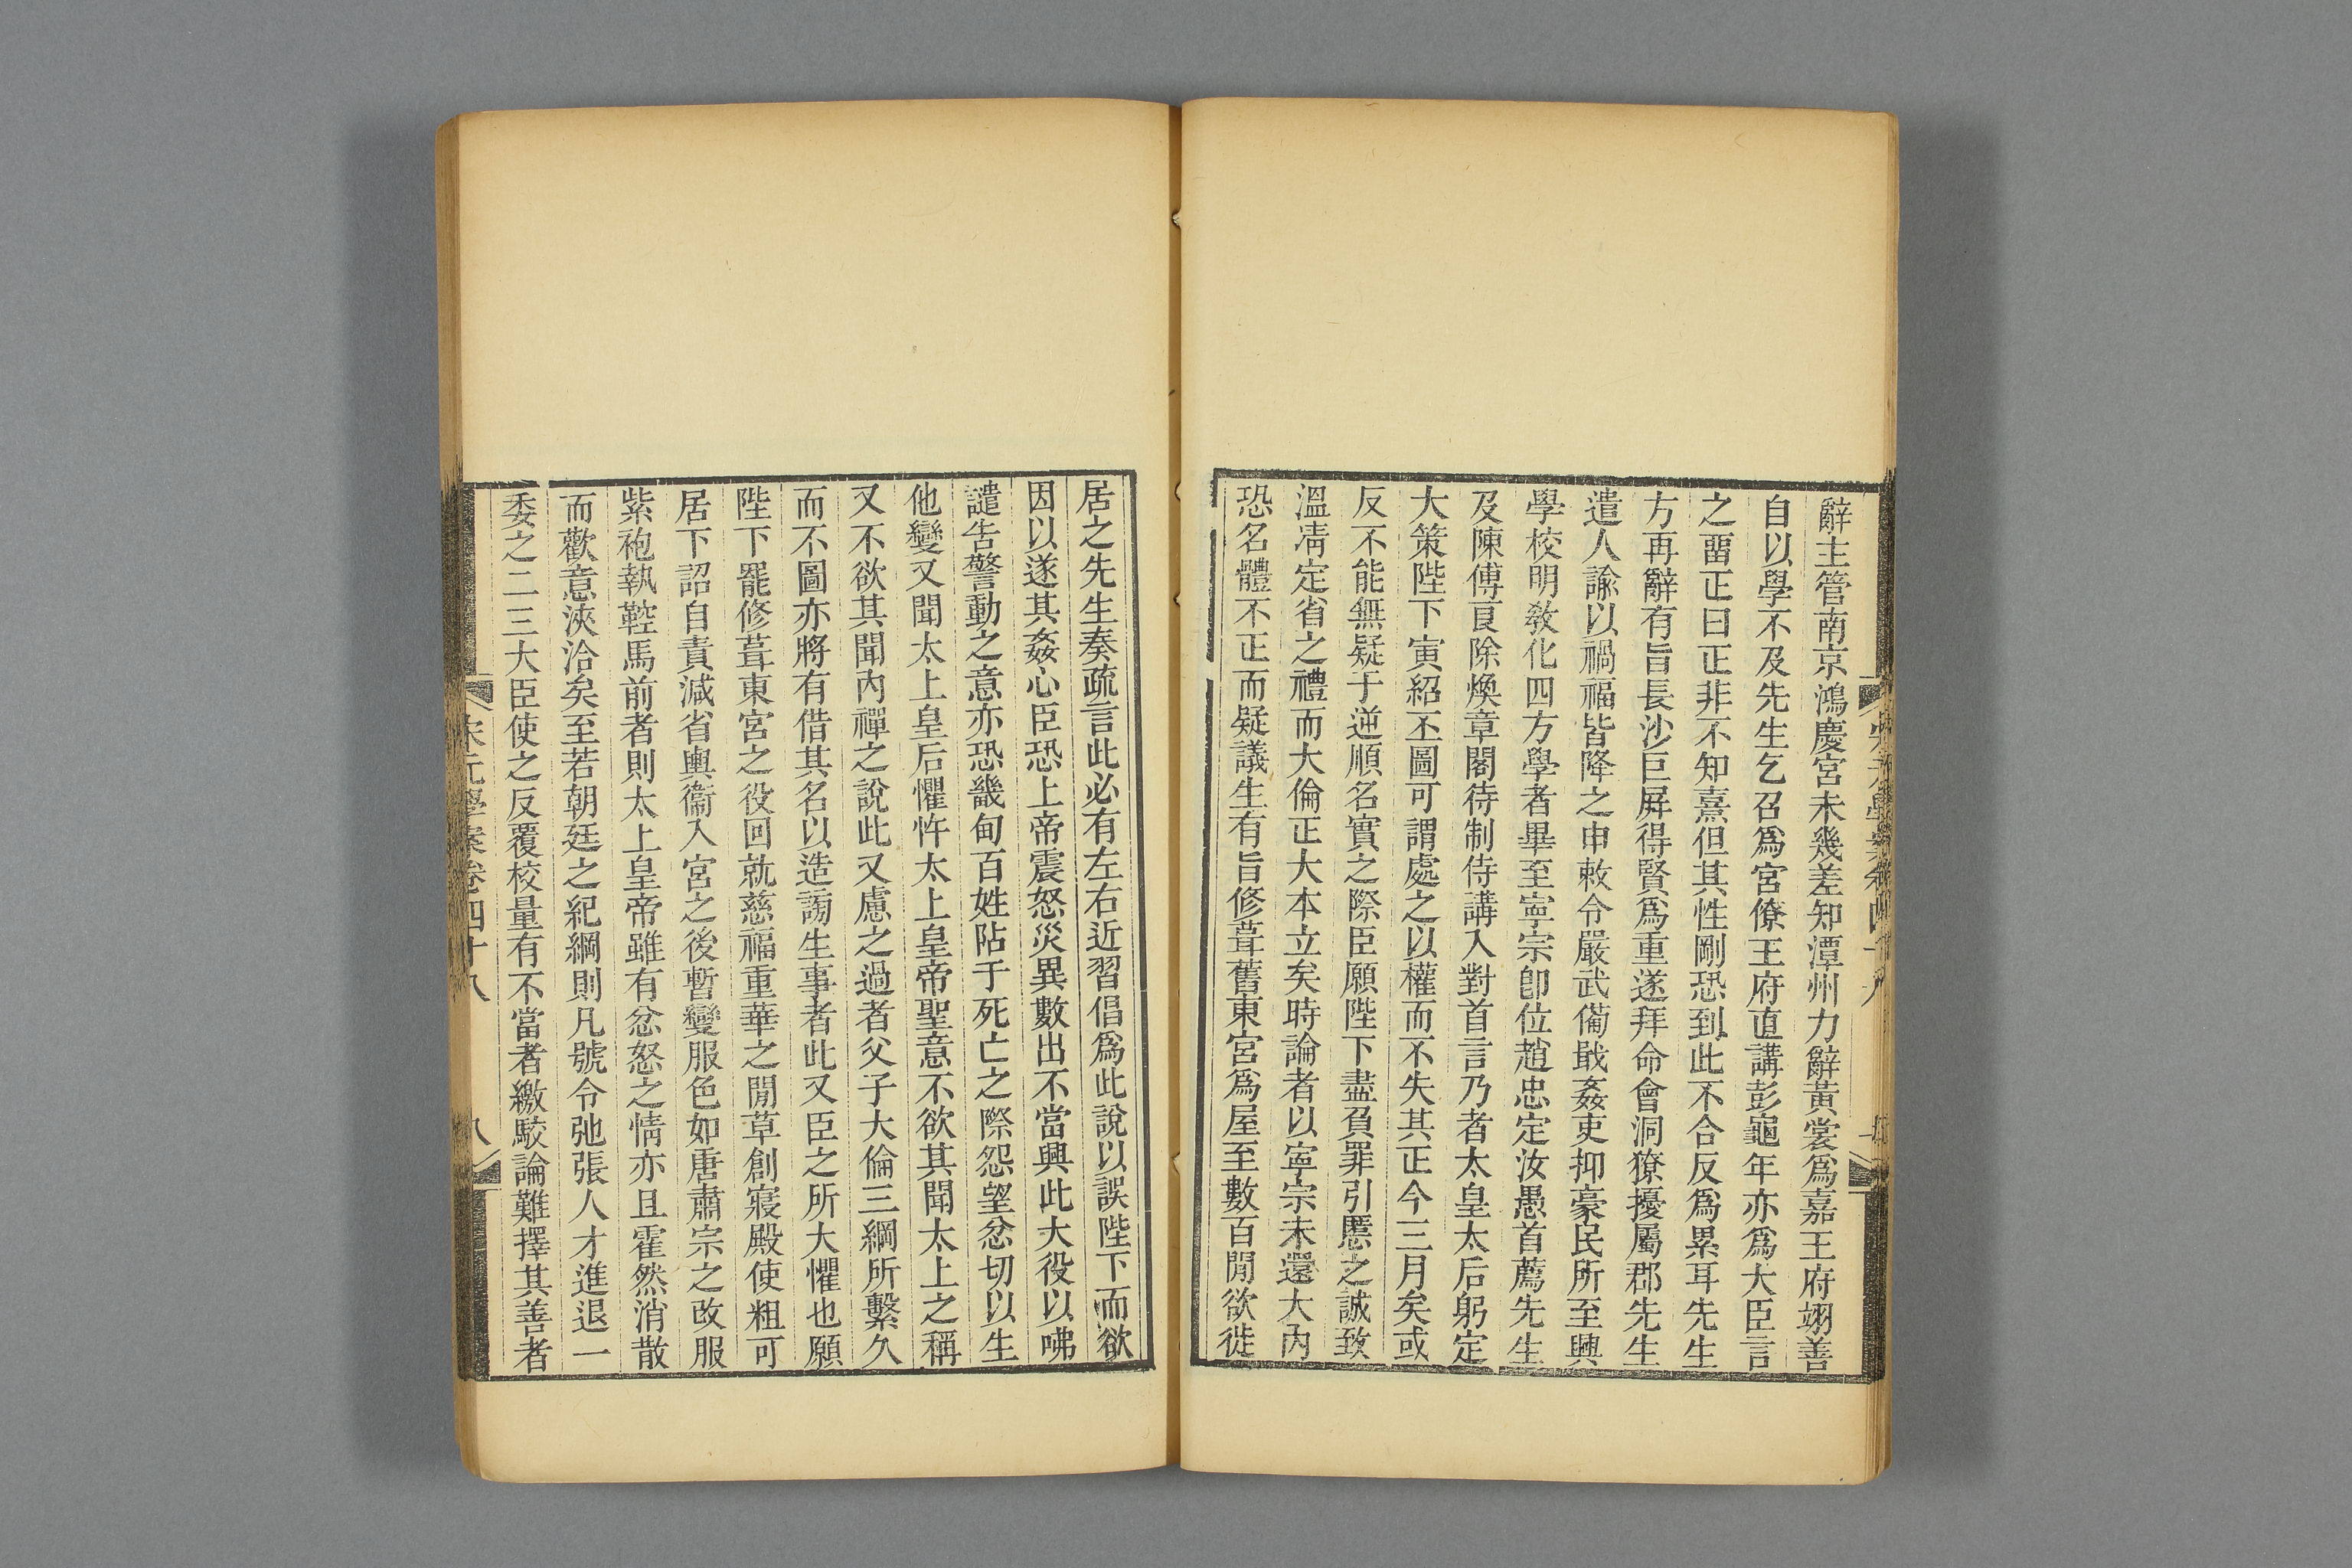 辭主管南京鴻慶宮未幾差知潭州力辭黃裳爲嘉王府翊善
自以學不及先生乞召爲宮僚王府直講彭龜年亦爲大臣言
之畱正曰正非不知熹但其性剛恐到此不合反爲累耳先生
方再辭有旨長沙巨屛得賢爲重遂拜命會洞獠擾屬郡先生
遣人諭以禍福皆降之申敕令嚴武僃戢姦吏抑豪民所至興
學校明敎化四方學者畢至寧宗卽位趙忠定汝愚首薦先生
及陳傅良除煥章閣待制侍講入對首言乃者太皇太后躬定
大策陛下寅紹丕圖可謂處之以權而不失其正今三月矣或
反不能無疑于逆順名實之際臣願陛下盡負罪引慝之誠致
溫凊定省之禮而大倫正大本立矣時論者以寧宗未還大內
恐名體不正而疑議生有旨修葺舊東宮爲屋至數百閒欲徙
居之先生奏疏言此必有左右近習倡爲此說以誤陛下而欲
因以遂其姦心臣恐上帝震怒災異數出不當興此大役以咈
譴告警動之意亦恐畿甸百姓阽于死亡之際怨望忿切以生
他變又聞太上皇后懼忤太上皇帝聖意不欲其聞太上之稱
又不欲其聞內禪之說此又慮之過者父子大倫三綱所繫久
而不圖亦將有借其名以造謗生事者此又臣之所大懼也願
陛下罷修葺東宮之役回就慈福重華之閒草創寢殿使粗可
居下詔自責減省輿衞入宮之後暫變服色如唐肅宗之改服
紫袍執鞚馬前者則太上皇帝雖有忿怒之情亦且霍然消散
而歡意浹洽矣至若朝廷之紀綱則凡號令弛張人才進退一
委之二三大臣使之反覆校量有不當者繳駮論難擇其善者
宋元學案卷四十八
八